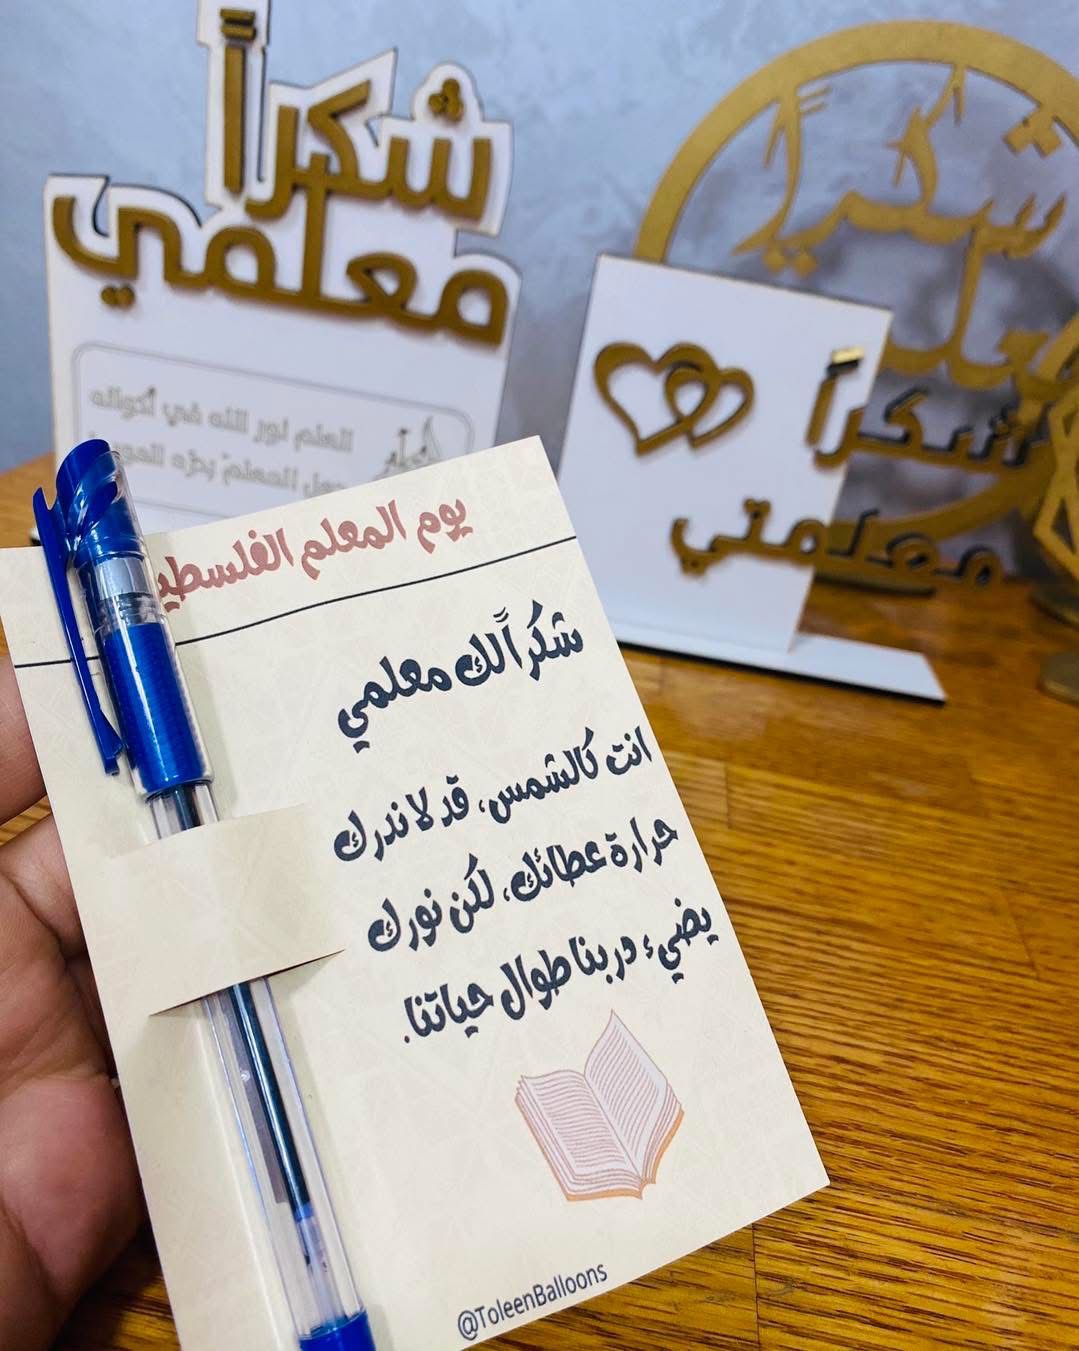 شكراً
معلمي
العلم نور الله في أكوانه
المعلم
شكراً
شكراً
معلمتي
يوم المعلم
شكراً لك معلمي
انت كالشمس، قد لا ندرك
حرارة عطائك، لكن نورك
يضيء دربنا طوال حياتنا.
@ToleenBalloons